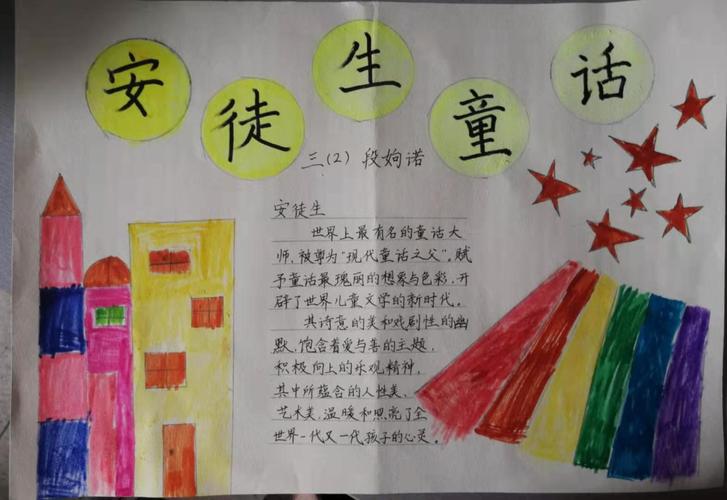 安徒生童话
三(2) 段姁诺
安徒生
世界上最有名的童话大
师,被尊为“现代童话之父”,赋
予童话最瑰丽的想象与色彩,开
辟了世界儿童文学的新时代。
其诗意的美和戏剧性的幽
默,饱含着爱与善的主题,
积极向上的乐观精神,
其中所蕴含的人性美、
艺术美,温暖和照亮了全
世界一代又一代孩子的心灵。